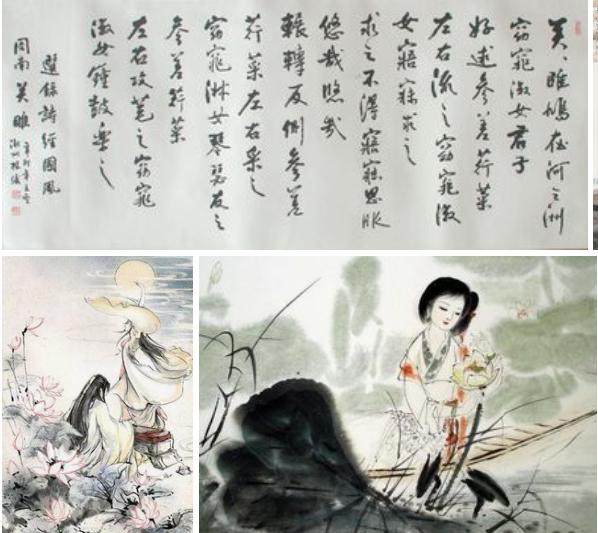 关、雎鳩在河之洲
窈窕淑女君子
好逑參差荇菜
左右流之窈窕淑
女寤寐求之
求之不得寤寐思服
悠哉悠哉
輾轉反側參差
荇菜左右采之
窈窕淑女琴瑟友之
參差荇菜
左右芼之窈窕
淑女鐘鼓樂之
選錄詩經國風
周南关雎